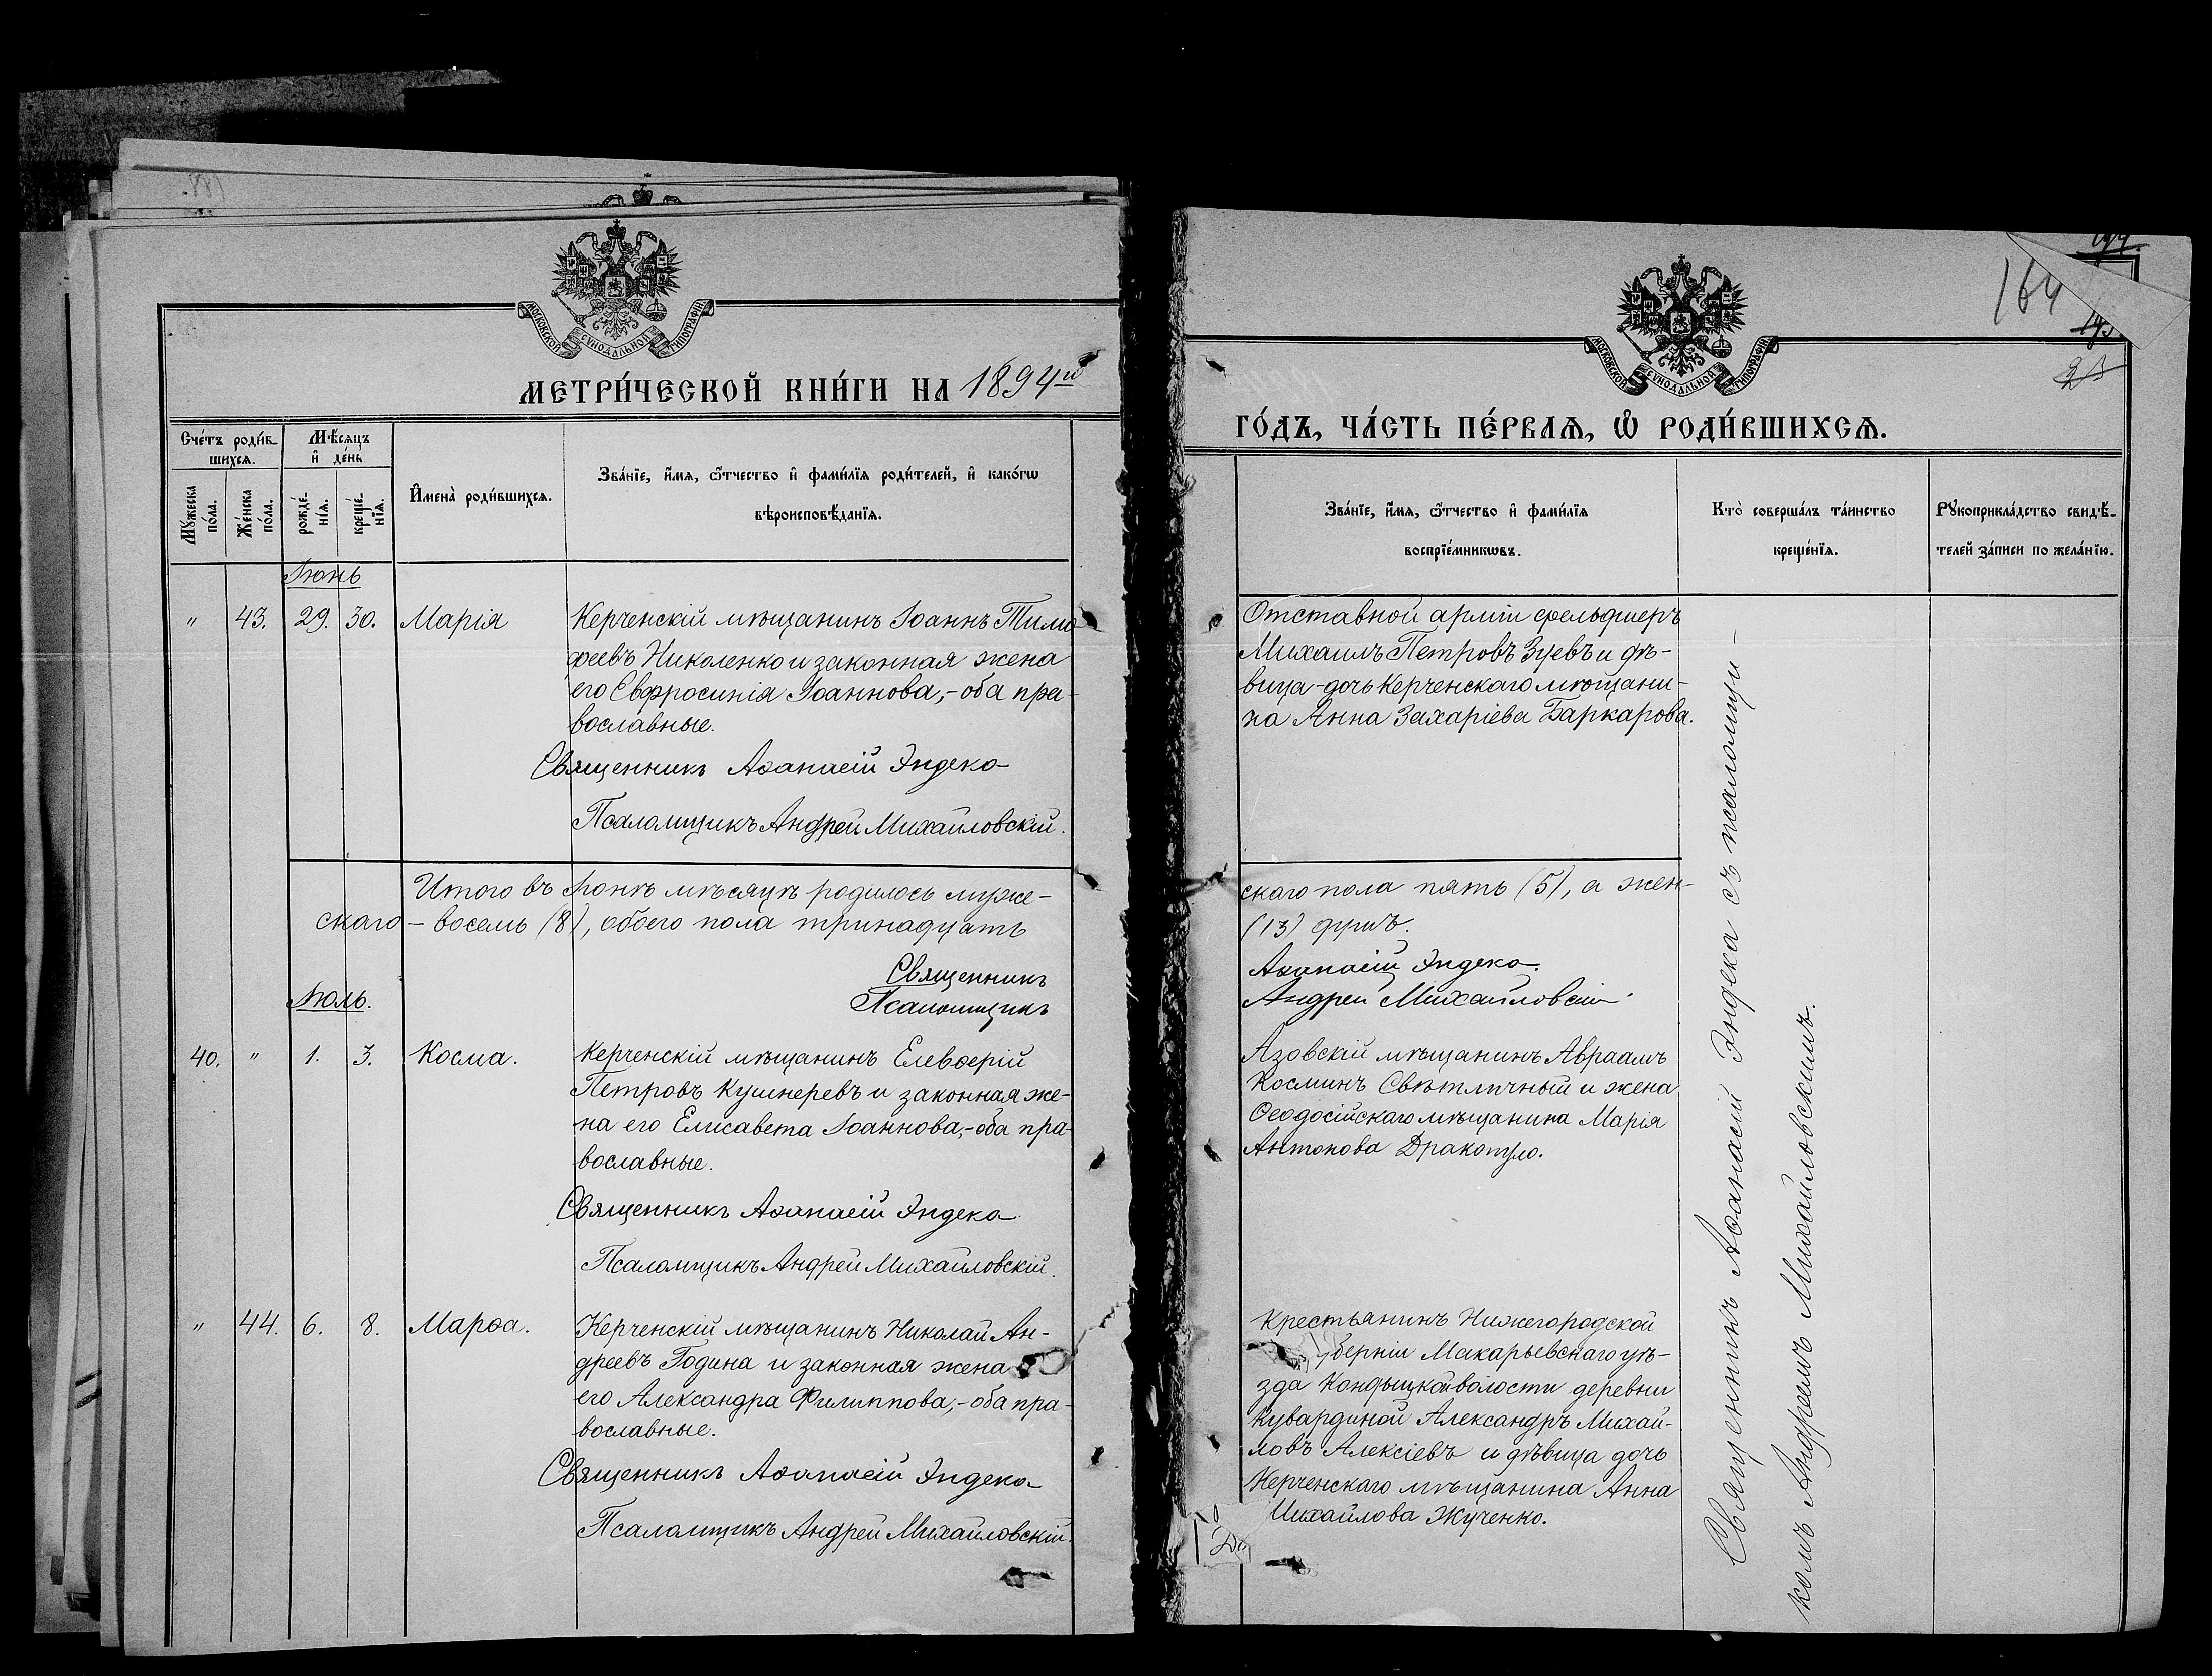 МОСКОВСКОЙ СѴНОДАЛЬНОЙ ТИПОГРАФІИ
МЕТРИ́ЧЕСКОЙ КНИ́ГИ НА 1894й
Счéтъ роди́в-
шихсѧ.
Мѣ́сѧцъ
и҆ дéнь
Мꙋ́жеска
по́ла.
Жéнска
по́ла.
рождé-
нїѧ.
крещé-
нїѧ.
И҆менà роди́вшихсѧ.
Звáнїе, и҆́мѧ, ѻ҆́тчество и҆ фами́лїѧ роди́телей, и҆ какóгѡ
вѣроисповѣ́данїѧ.
Іюнь
" 43. 29. 30. Марія
Керченскій мѣщанинъ Іоаннъ Тимо
феевъ Николенко и законная жена
его Евфросинія Іоаннова,-оба пра-
вославные.
Священникъ Аѳанасій Эндека
Псаломщикъ Андрей Михайловскій.
Итого въ Іюнѣ мѣсяцѣ родилось муже-
скаго - восемь (8), обоего пола тринадцать
Священникъ
Псаломщикъ
Іюль.
40. " 1. 3. Косма.
Керченскій мѣщанинъ Елевѳерій
Петровъ Кушнеревъ и законная же-
на его Елисавета Іоаннова,-оба пра-
вославные.
Священникъ Аѳанасій Эндека
Псаломщикъ Андрей Михайловскій.
" 44. 6. 8. Марѳа.
Керченскій мѣщанинъ Николай Ан-
дреевъ Година и законная жена
его Александра Филиппова,-оба пра-
вославные.
Священникъ Аѳанасій Эндека
Псаломщикъ Андрей Михайловскій.
164
МОСКОВСКОЙ СѴНОДАЛЬНОЙ ТИПОГРАФІИ
ГО́ДЪ, ЧА́СТЬ ПЕ́РВАѦ, Ѽ РОДИ́ВШИХСѦ.
Звáнїе, и҆́мѧ, ѻ҆́тчество и҆ фами́лїѧ
воспрїéмникѡвъ.
Ктò совершáлъ тáинство
крещéнїѧ.
Рꙋкоприклáдство свидѣ́-
телей зáписи по желáнїю.
Отставной арміи фельдшеръ
Михаилъ Петровъ Зуевъ и дѣ-
вица-дочь Керченскаго мѣщани-
на Анна Захаріева Баркарова.
скаго пола пять (5), а жен-
(13) душъ.
Аѳанасій Эндека.
Андрей Михайловскій
Азовскій мѣщанинъ Авраамъ
Косминъ Свѣтличный и жена
Ѳеодосійскаго мѣщанина Марія
Антонова Дракопуло.
Крестьянинъ Нижегородской
губерніи Макарьевскаго уѣ-
зда волости деревни
Кувардиной Александръ Михай-
ловъ Алексіевъ и дѣвица дочь
Керченскаго мѣщанина Анна
Михайлова Жученко.
Священникъ Аѳанасій Эндека съ псаломщи-
комъ Андреемъ Михайловскимъ.